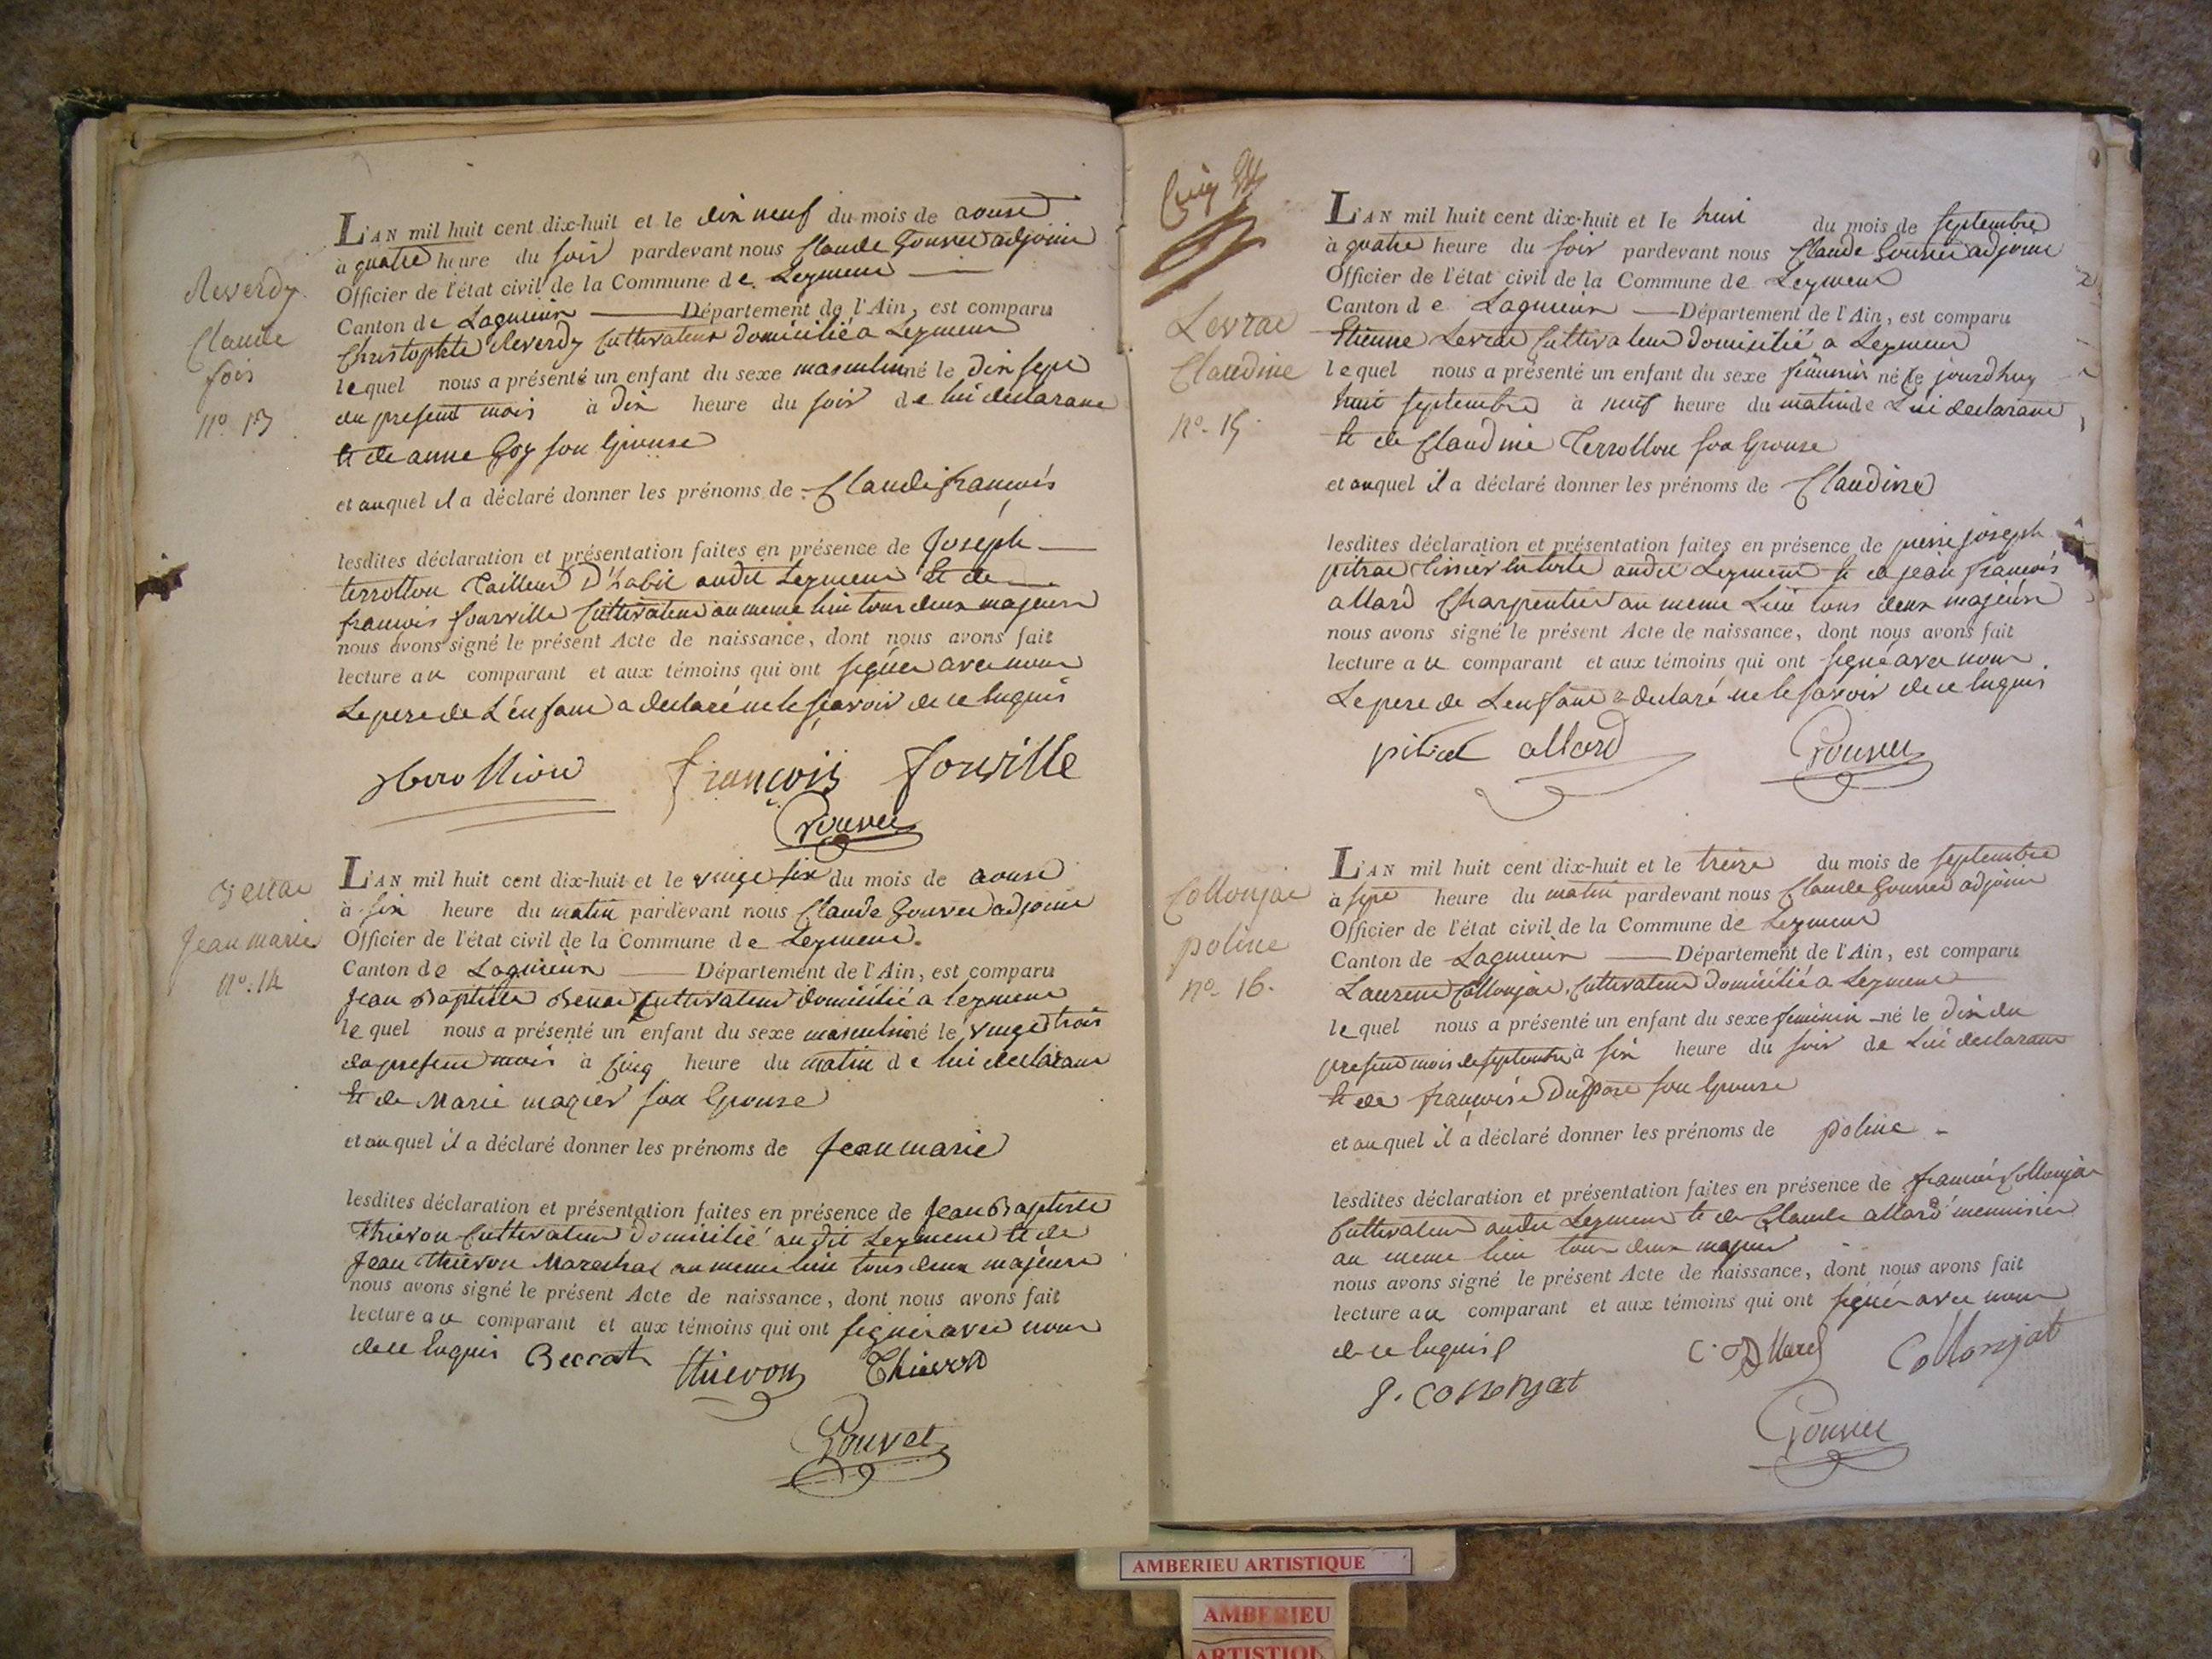 Reverdy
Claude
fois
nº. 13
L'AN mil huit cent dix-huit et le dix neuf du mois de aoust
à quatre heure du soir pardevant nous Claude Gouvet adjoint
Officier de l'état civil de la Commune de Leyment
Canton de Lagnieux Département de l'Ain, est comparu
Christophle Reverdy Cultivateur domicilié a Leyment
lequel nous a présenté un enfant du sexe masculin né le dix sept
du present mois à dix heure du soir de lui declarant
Et de anne Goy son Epouse
et auquel il a déclaré donner les prénoms de Claude françois
lesdites déclaration et présentation faites en présence de Joseph
terrollon Tailleur D'habit audit Leyment Et de
françois fourville Cultivateur au meme lieu tous deux majeurs
nous avons signé le présent Acte de naissance, dont nous avons fait
lecture au comparant et aux témoins qui ont signer avec nous
Le pere de L'enfant a declaré ne le sçavoir de ce Enquis
françois fourville
Gouvet
Jean marie
nº. 14
L'AN mil huit cent dix-huit et le vingt six du mois de aoust
à six heure du matin pardevant nous Claude Gouvet adjoint
Officier de l'état civil de la Commune de Leyment.
Canton de Lagnieux Département de l'Ain, est comparu
Jean Baptiste Cultivateur domicilié a leyment
lequel nous a présenté un enfant du sexe masculin né le vingt trois
du present mois à Cinq heure du matin de lui declarant
Et de Marie magier son Epouse
et auquel il a déclaré donner les prénoms de Jean marie
lesdites déclaration et présentation faites en présence de Jean Baptiste
Thievon Cultivateur Domicilié au dit Leyment Et de
Jean thievon Marechal au meme lieu tous deux majeurs
nous avons signé le présent Acte de naissance, dont nous avons fait
lecture au comparant et aux témoins qui ont signer avec nous
de ce Enquis Beccat thievon Thievon
Gouvet
Cinq
Levrat
Claudine
nº. 15.
L'AN mil huit cent dix-huit et le huit du mois de septembre
à quatre heure du soir pardevant nous Claude Gouvet adjoint
Officier de l'état civil de la Commune de Leyment
Canton de Lagnieux Département de l'Ain, est comparu
Etienne Levrat Cultivateur Domicilié a Leyment
lequel nous a présenté un enfant du sexe féminin né le jourdhuy
huit septembre à neuf heure du matin de Lui declarant
Et de Claudine Terrollon son Epouse
et auquel il a déclaré donner les prénoms de Claudine
lesdites déclaration et présentation faites en présence de pierre joseph
pitrat tissier en toile audit Leyment Et de jean françois
allard Charpentier au meme Lieu tous deux majeurs
nous avons signé le présent Acte de naissance, dont nous avons fait
lecture au comparant et aux témoins qui ont signé avec nous.
Le pere de L'enfant a declaré ne le savoir de ce Enquis
pitrat allard Gouvet
Collonjat
poline
nº. 16.
L'AN mil huit cent dix-huit et le treize du mois de septembre
à sept heure du matin pardevant nous Claude Gouvet adjoint
Officier de l'état civil de la Commune de Leyment
Canton de Lagnieux Département de l'Ain, est comparu
Laurent Collonjat, Cultivateur Domicilié a Leyment
lequel nous a présenté un enfant du sexe feminin né le dix du
present mois de septembre à six heure du soir de Lui declarant
Et de françoise son Epouse
et auquel il a déclaré donner les prénoms de poline
lesdites déclaration et présentation faites en présence de françois Collonjat
Cultivateur audit Leyment Et de Claude allard menuisier
au meme lieu tous deux majeur
nous avons signé le présent Acte de naissance, dont nous avons fait
lecture au comparant et aux témoins qui ont signer avec nous
de ce Enquis C. Allard Collonjat
Gouvet
AMBERIEU ARTISTIQUE
AMBERIEU